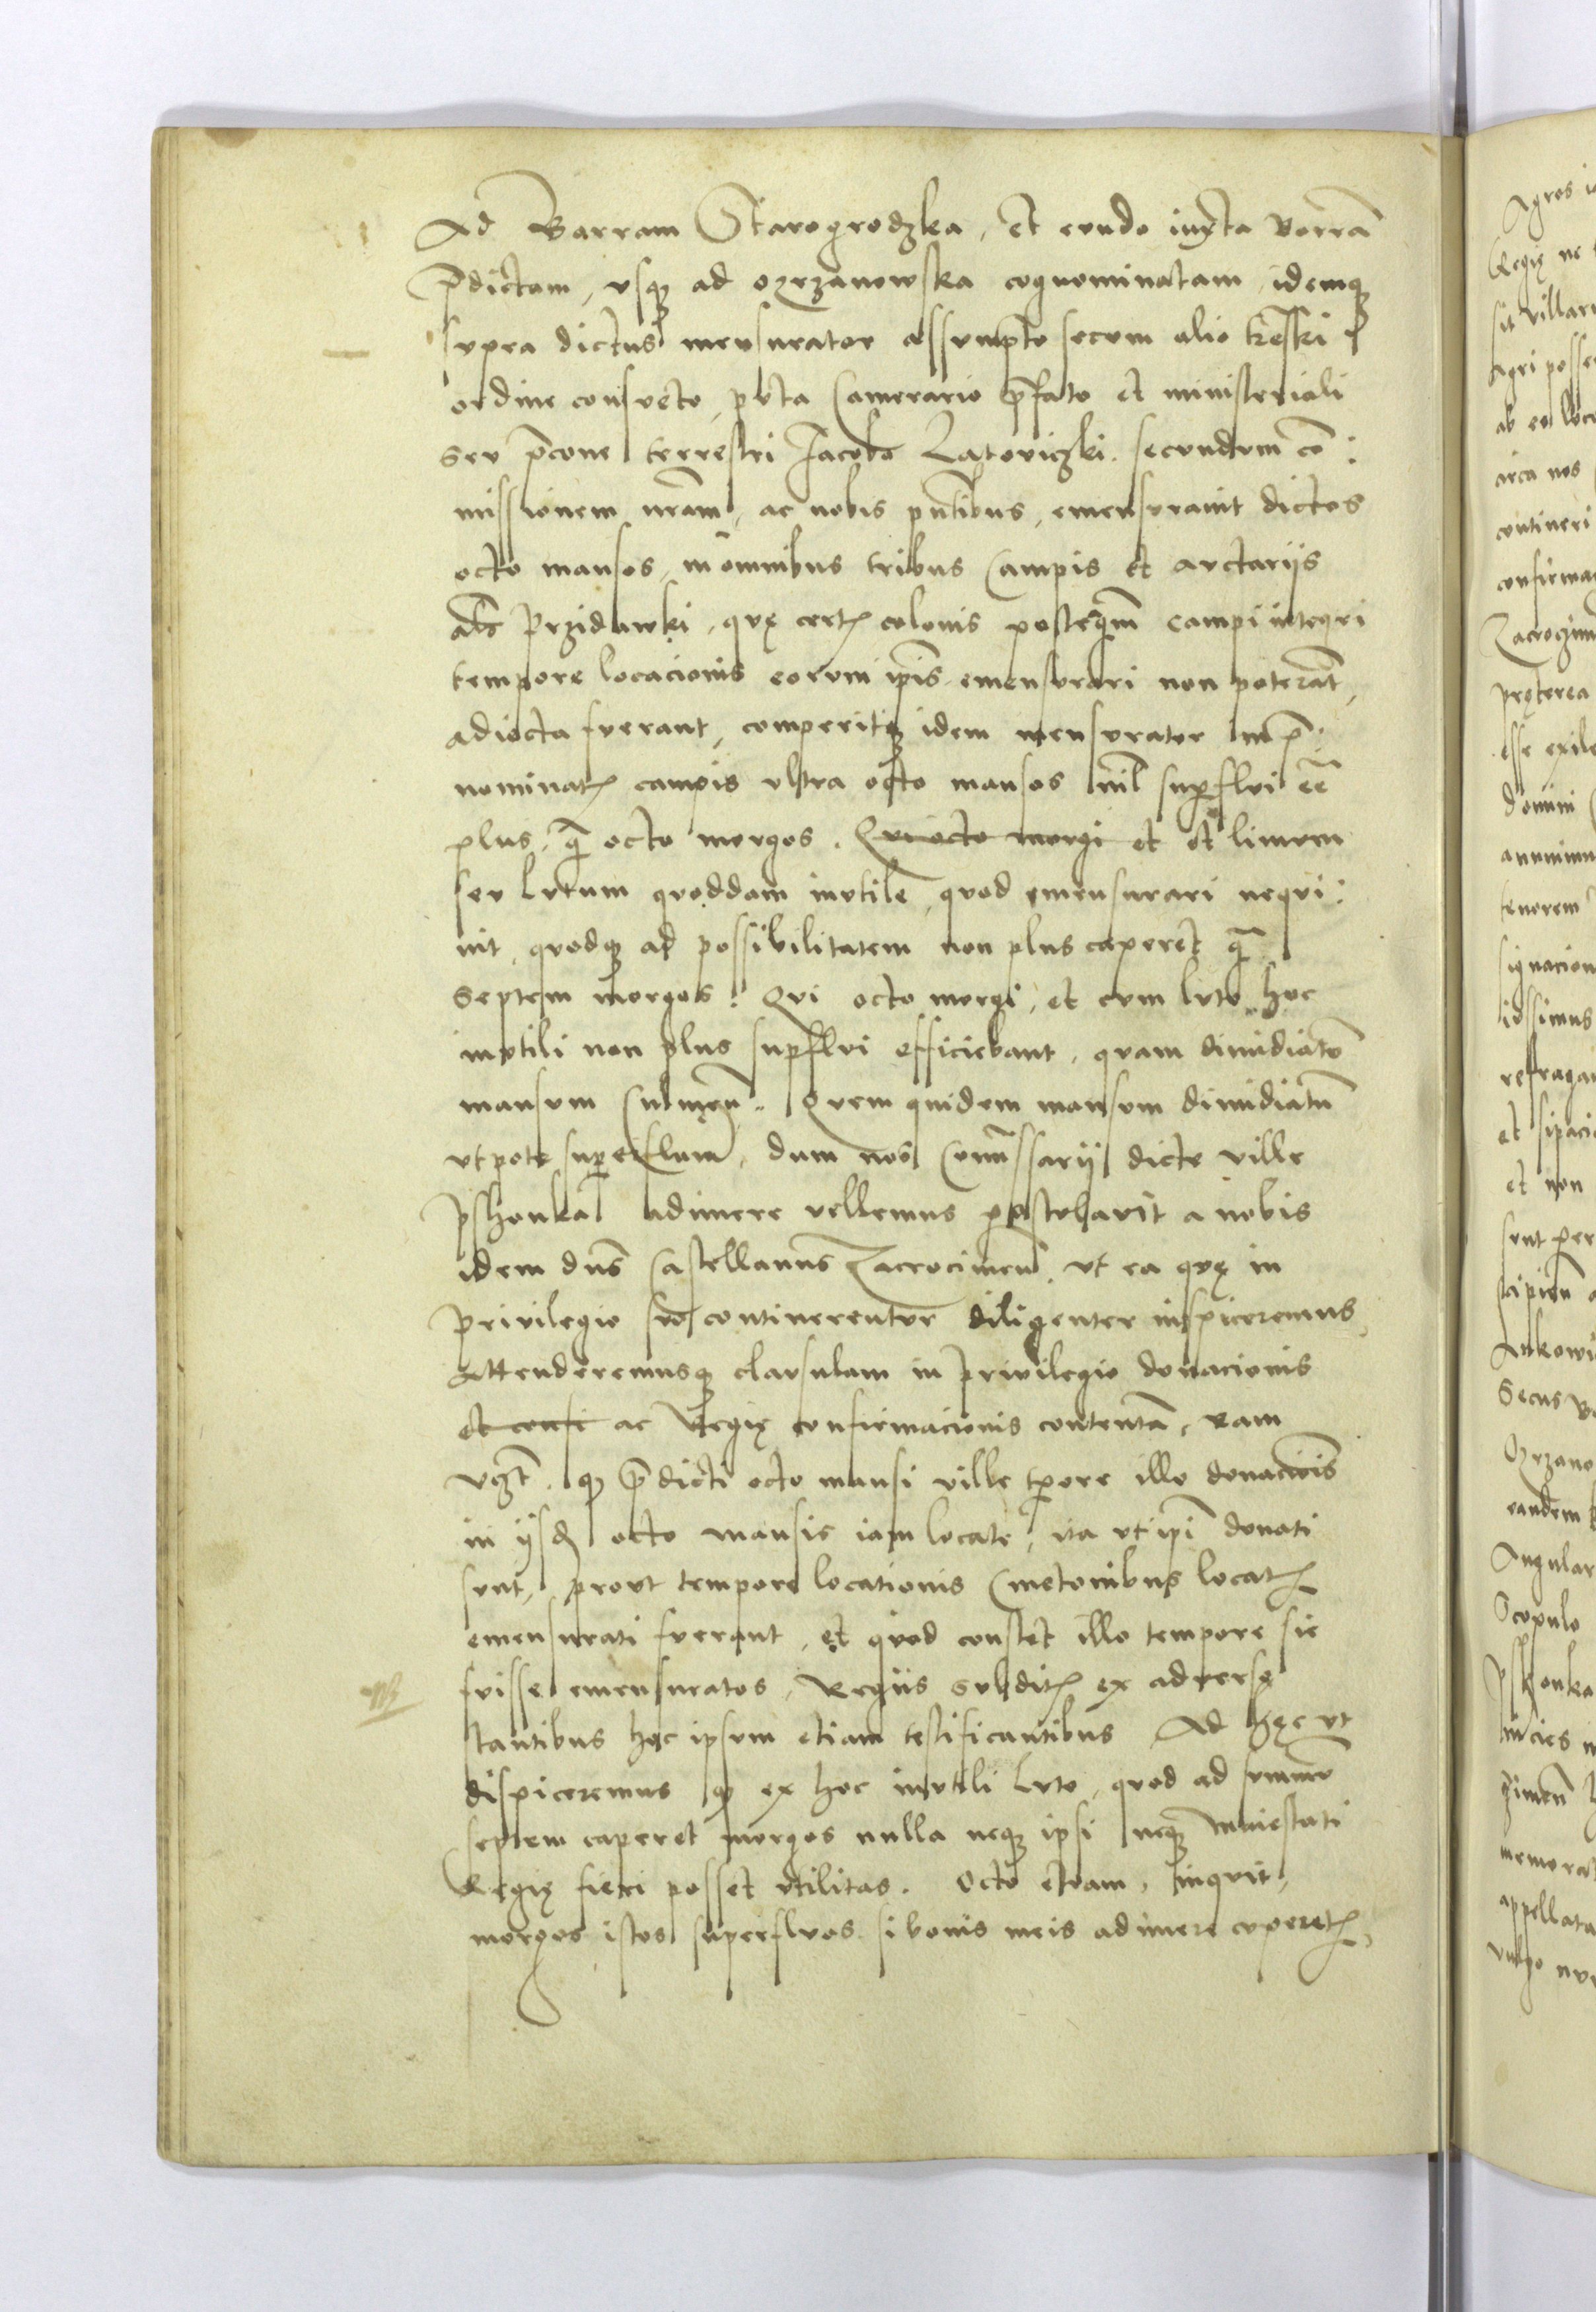 Ad Barram Starogrodzka, et eundo iuxta borrā
p̄dictam, usq; ad ozrzanowska cognominatam, idemq;
supra dictus mensurator assumpto secum alio
ordine consueto, puta Camerario p̄fato et ministeriali
seu p̄cone terrestri Jacobo Zatoriczki. secundum cō:
missionem nr̄am, ac nobis pn̄tibus, emensuravit dictos
octo mansos, in omnibus tribus Campis et arctariis
al̄s Przidawki, quę cert; colonis posteq̄m campi integri
tempore locacionis eorum ip̄is emensurari non poterāt,
adiecta fuerant, comperitq; idem mensurator in p̄:
nominat; campis ultra octo mansos nīl superflui ēē
plus, q̄ octo morgos. Qui octo morgi et limum
seu lutum quoddam inutile, quod emensurari nequi:
vit, quodq; ad possibilitatem non plus caperet q̄
septem morgos. Qui octo morgi, et cum luto hoc
inutili non plus sup̄flui efficiebant, quam dimidiatū
mansum Culmen̄. Quem quidem mansum dimidiatū
utpote superfluum, dum nos Comissarii dicte ville
Pshonka adimere vellemus postulavit a nobis
idem dn̄s Castellanus Zacrocimen̄. ut ea quę in
privilegio suo continerentur diligenter inspiceremus
Attenderemusq; clausulam in privilegio donacionis
et confi ac Regię confirmacionis contentā, eam
vz̄t. q; p̄dicti octo mansi ville tp̄ore illo donaciōis
in iisd; octo mansis iam locate, ita ut ip̄i donati
sunt, prout tempore locationis Cmetonibus locat;
emensurati fuerant, et quod constet illo tempore sic
fuisse emensuratos, Regiis subdit; ex adverso
stantibus hoc ipsum etiam testificantibus Ad hęc ut
dispiceremus q; ex hoc inutili luto, quod ad summū
septem caperet morgos nulla neq; ipsi neq; Maiestati
Regię fieri posset utilitas. Octo etiam, inquit,
morgos istos superfluos si bonis meis adimere cuperet;